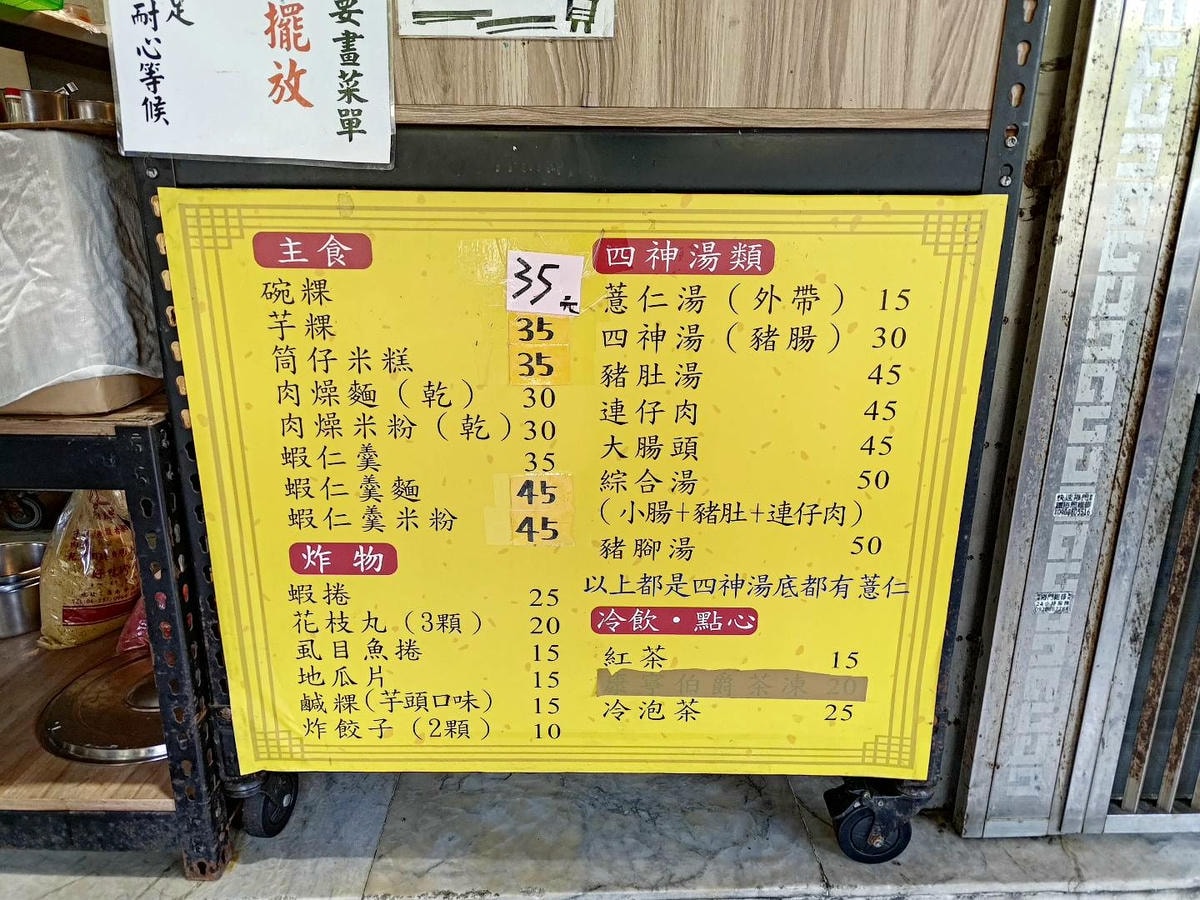 要畫菜單
擺放
足
耐心等候
主食
碗粿 35元
芋粿 35
筒仔米糕 35
肉燥麵（乾） 30
肉燥米粉（乾） 30
蝦仁羹 35
蝦仁羹麵 45
蝦仁羹米粉 45
炸物
蝦捲 25
花枝丸（3顆） 20
虱目魚捲 15
地瓜片 15
鹹粿(芋頭口味) 15
炸餃子（2顆） 10
四神湯類
薏仁湯（外帶） 15
四神湯（豬腸） 30
豬肚湯 45
連仔肉 45
大腸頭 45
綜合湯 50
（小腸+豬肚+連仔肉）
豬腳湯 50
以上都是四神湯底都有薏仁
冷飲・點心
紅茶 15
伯爵茶凍 20
冷泡茶 25